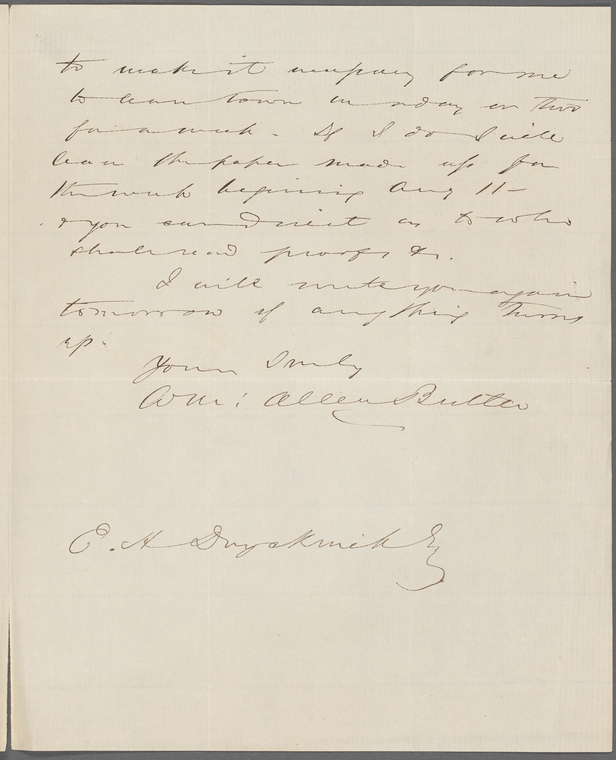 to make it necessary for me
to leave town in a day or two
for a week. If I do I will
leave the paper made up for
the week beginning Aug 11 -
& you can direct as to who
shall read proofs &c.
I will write you again
tomorrow if anything turns
up.
Yours Truly
Wm: Allen Butler
E. A Duyckinck Esq